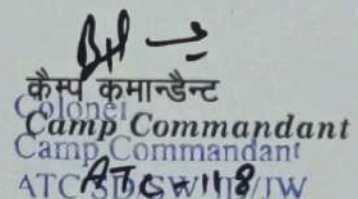 कैम्प कमान्डैन्ट
Colonel
Camp Commandant
Camp Commandant
ATC-118